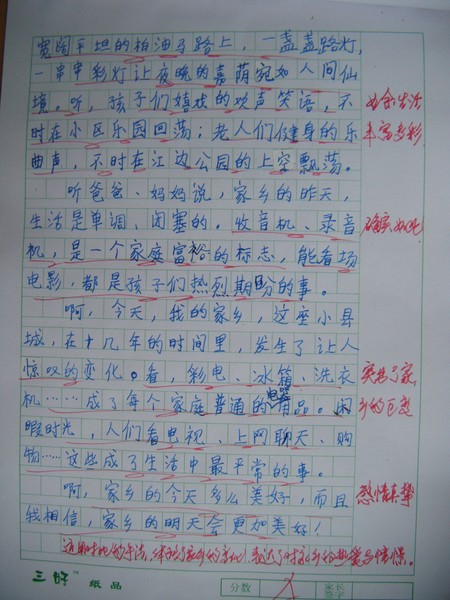 宽阔平坦的柏油马路上，一盏盏路灯，
一串串彩灯让夜晚的嘉荫宛如人间仙
境。听，孩子们嬉戏的欢声笑语，不
时在小区乐园回荡；老人们健身的乐
曲声，不时在江边公园的上空飘荡。
听爸爸、妈妈说，家乡的昨天，
生活是单调、闭塞的。收音机、录音
机，是一个家庭富裕的标志，能看场
电影，都是孩子们热烈期盼的事。
啊，今天，我的家乡，这座小县
城，在十几年的时间里，发生了让人
惊叹的变化。看，彩电、冰箱、洗衣
机……成了每个家庭普通的电器用品。闲
暇时光，人们看电视、上网聊天、购
物……这些成了生活中最平常的事。
啊，家乡的今天多么美好，而且
我相信，家乡的明天会更加美好！
生活
丰富多彩
确实如此
感情真挚
三好 纸品
分数
家长
签字